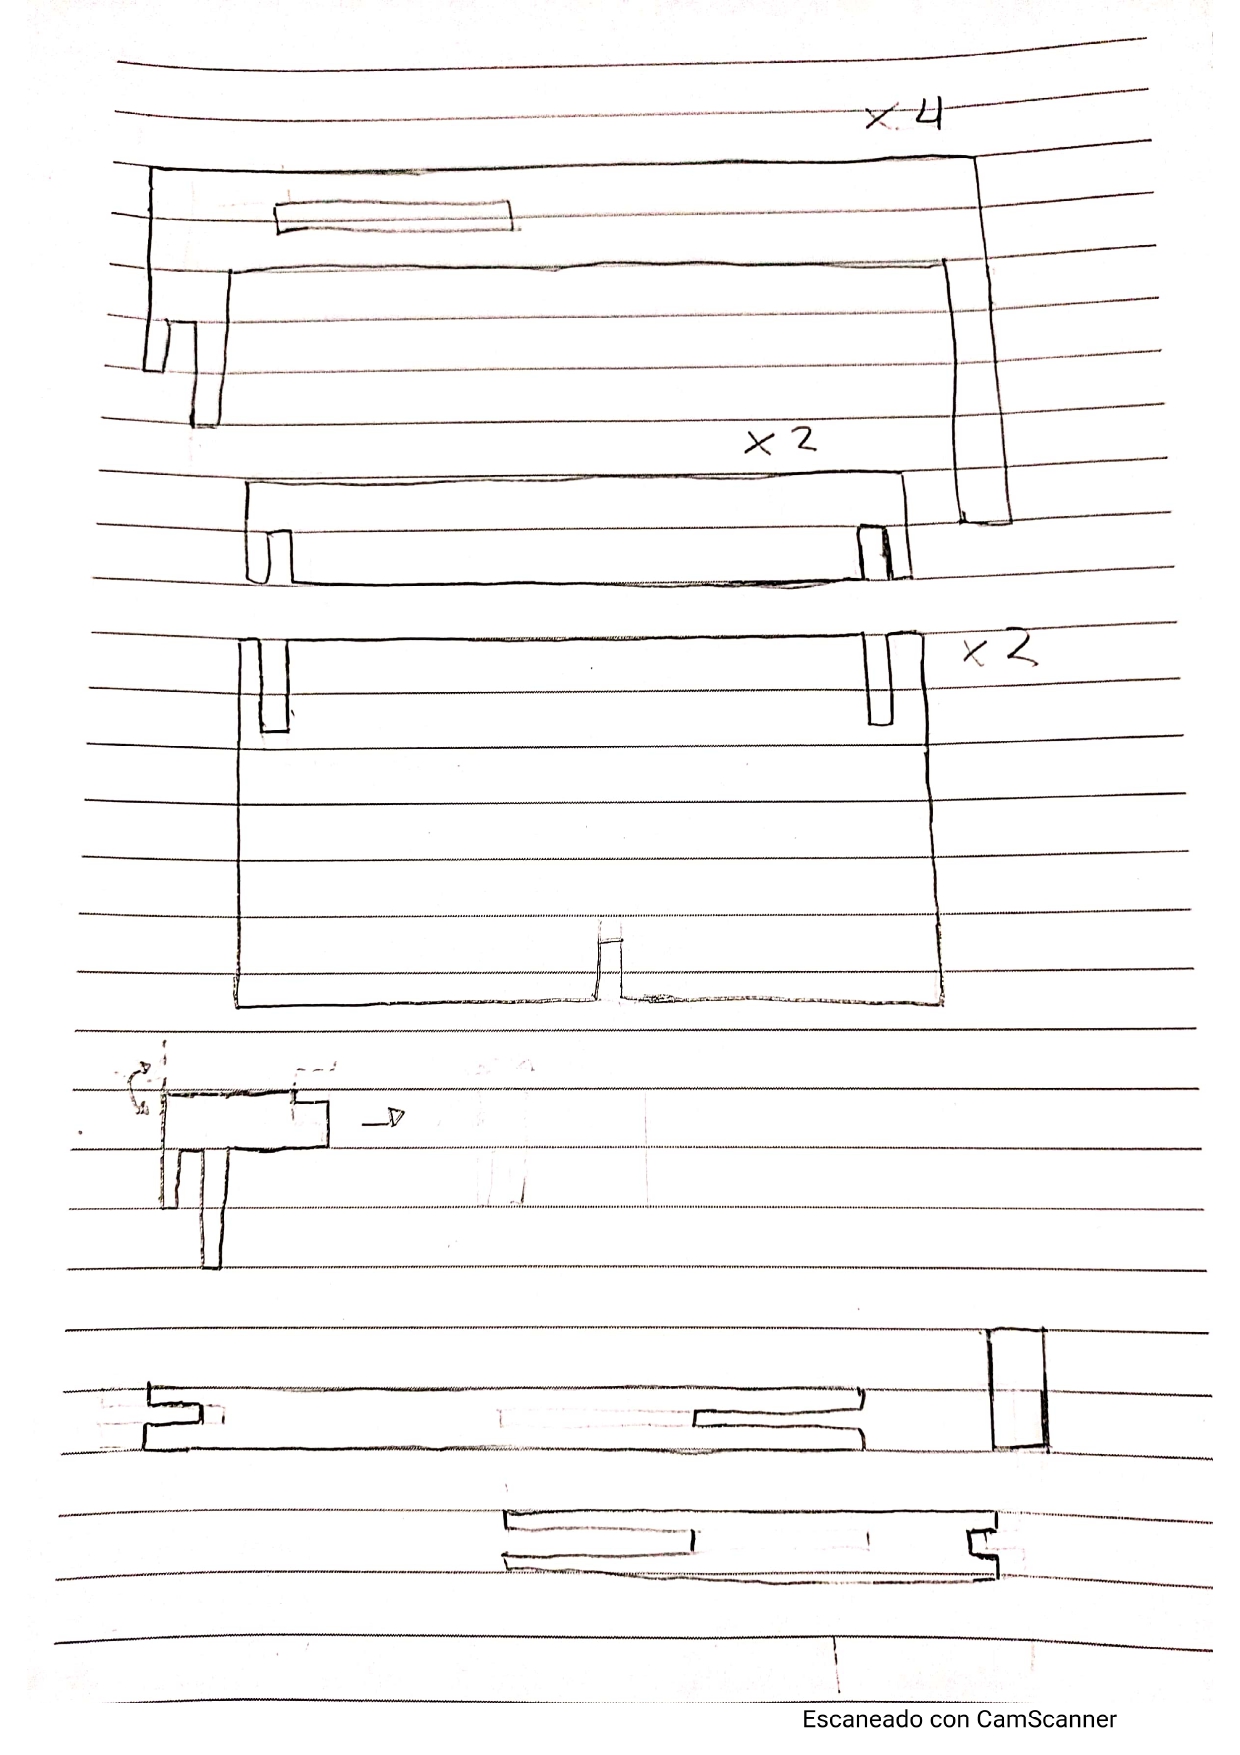 x 4
x 2
x 2
Escaneado con CamScanner